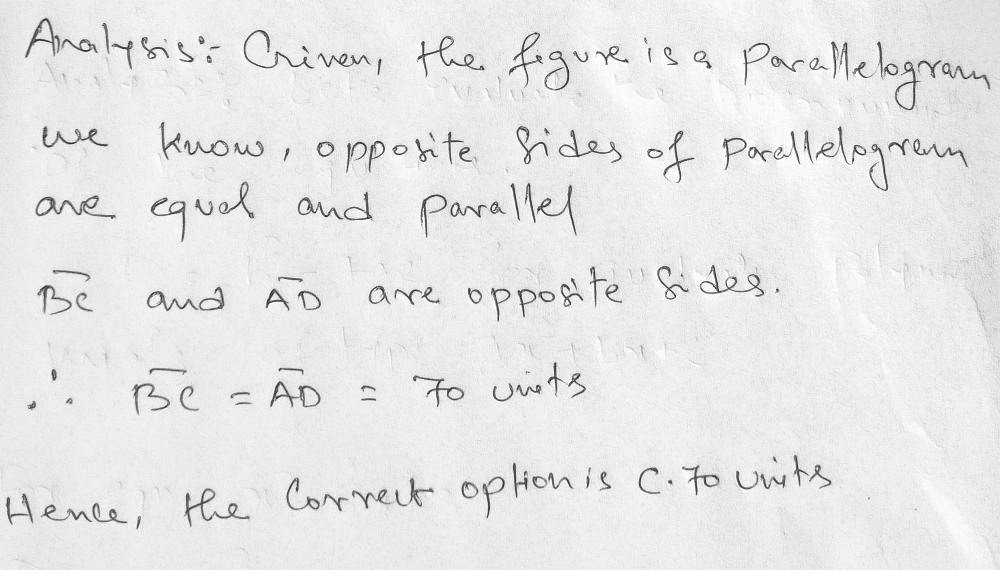 Analysis:- Given, the figure is a Parallelogram
we know, opposite sides of Parallelogram
are equal and parallel
BC and AD are opposite sides.
∴ BC = AD = 70 units
Hence, the Correct option is C. 70 units